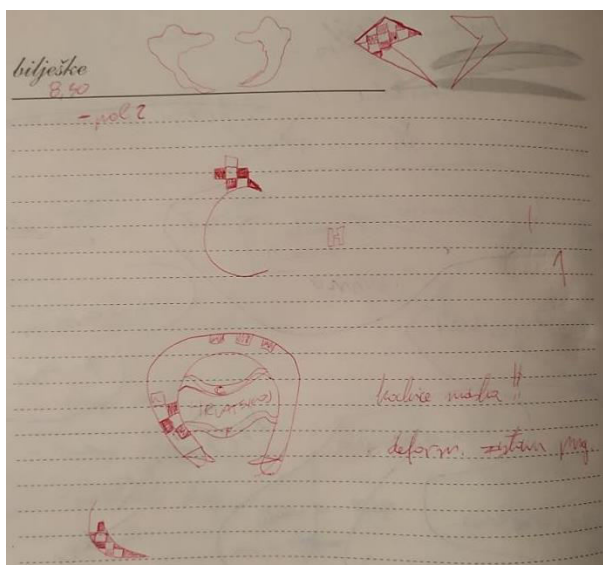 bilješke
8,50
- pol 2
H
HRVATSKOJ
kockice maska !!
deform. zastava png.